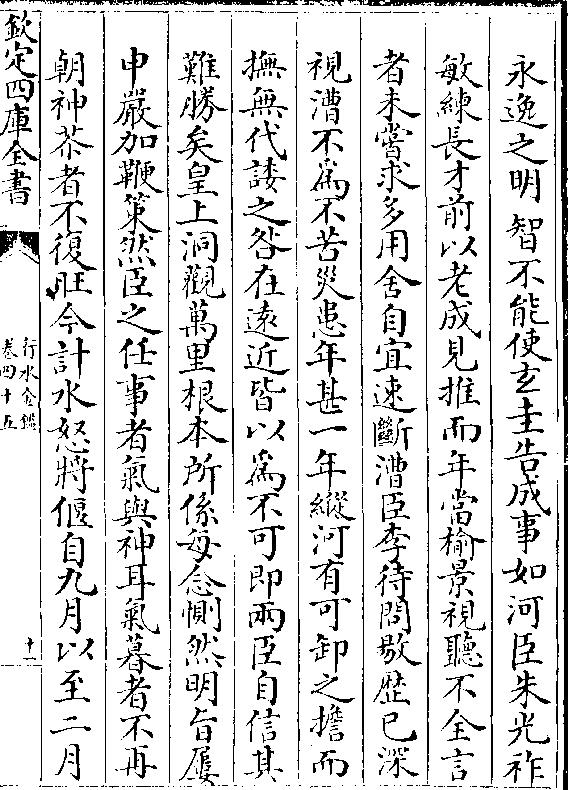 永逸之明智不能使玄圭告成事如河臣朱光祚
敏練長才前以老成見推而年當榆景視聽不全言
者未嘗求多用舍自宜速斷漕臣李待問敭歴已深
視漕不為不苦災患年甚一年縱河有可卸之擔而
撫無代諉之咎在遠近皆以為不可即兩臣自信其
難勝矣皇上洞觀萬里根本所係每念惻然明旨屢
申嚴加鞭策然臣之任事者氣與神耳氣暮者不再
朝神苶者不復旺今計水怒將偃自九月以至二月
欽定四庫全書
行水金鑑
卷四十五
十一